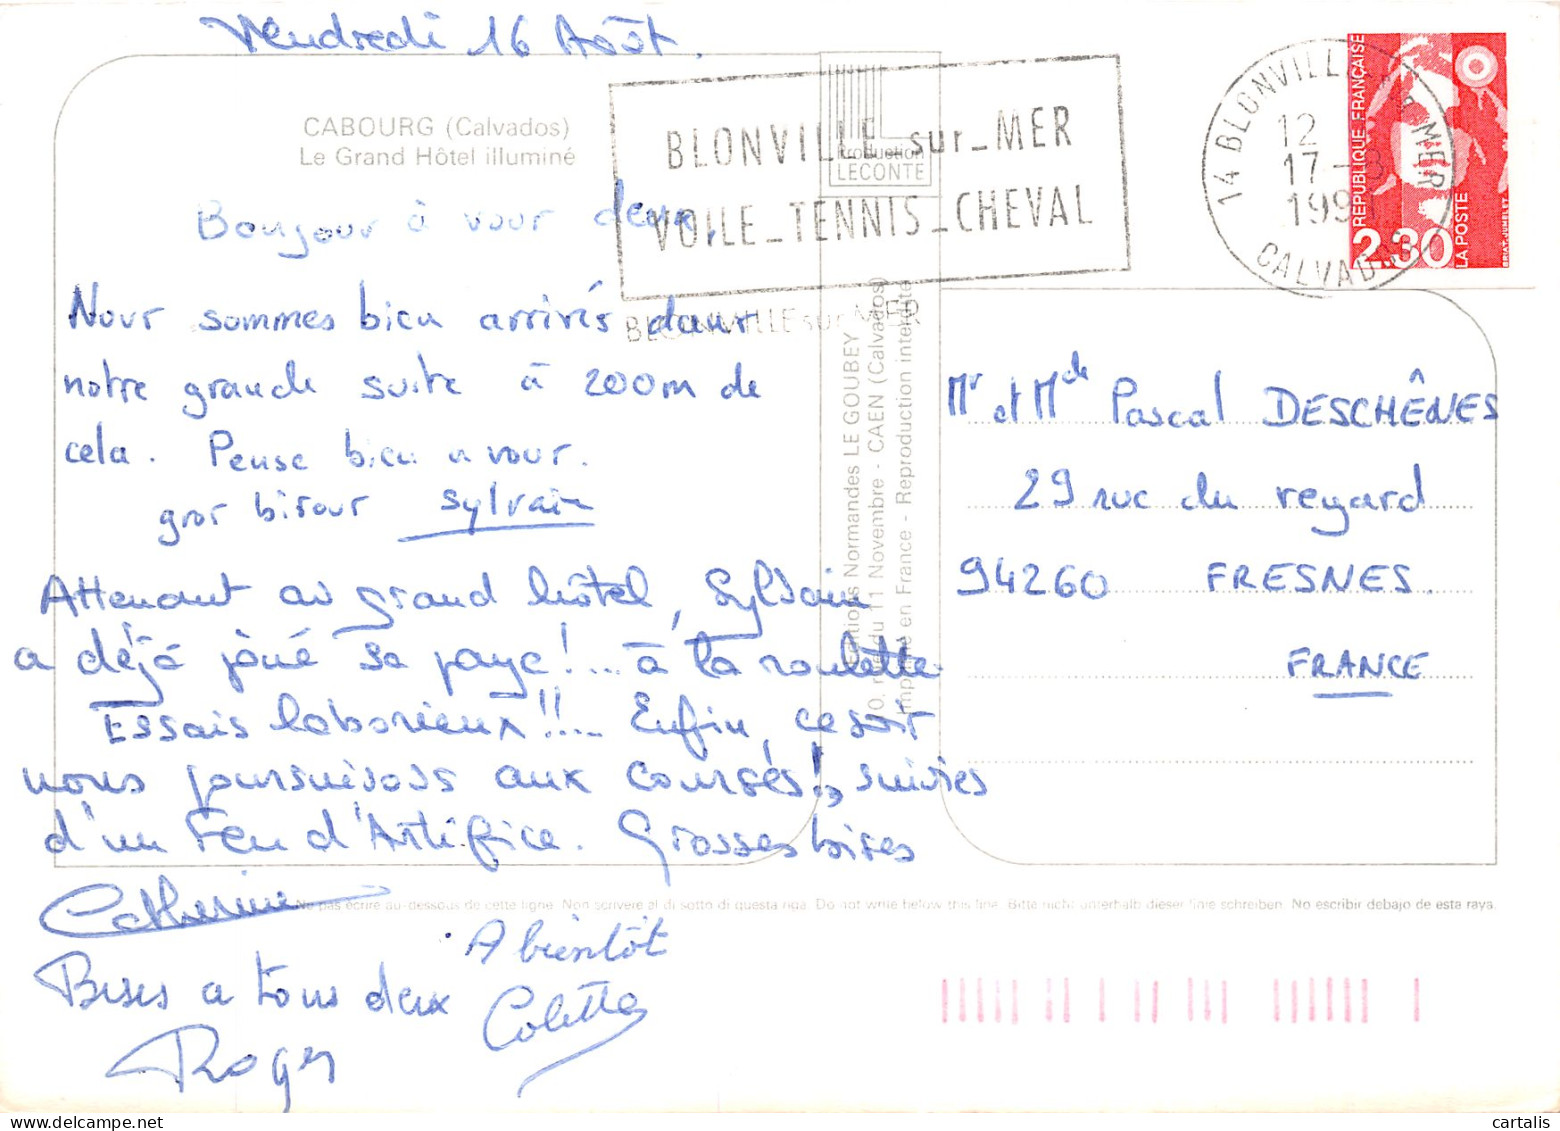 Vendredi 16 Août.
CABOURG (Calvados)
Le Grand Hôtel illuminé
Production
LECONTE
BLONVILLE_sur_MER
VOILE_TENNIS_CHEVAL
BLONVILLE sur MER
14 BLONVILLE MER
12
17-8
1991
CALVADOS
REPUBLIQUE FRANÇAISE
2.30
LA POSTE
BRIAT-JUMELET
Bonjour à vour deux,
Nour sommes bien arrivés danr
notre grande suite à 200m de
cela. Pense bien a vour.
gror birour Sylvain
Attenant au grand hôtel, Sylvain
a déjà joué sa paye!... à la roulette
Essais laborieux!!... Enfin, ce soir
nous poursuivons aux courses!, suivies
d'un Feu d'Artifice. Grosses bises
Catherine
Bises a tous deux
Roger
A bientôt
Colette
Editions Normandes LE GOUBEY
10, rue du 11 Novembre - CAEN (Calvados)
Imprimé en France - Reproduction interdite
Mr et Mde Pascal DESCHÊNES
29 rue du regard
94260 FRESNES.
FRANCE
Ne pas écrire au-dessous de cette ligne. Non scrivere al di sotto di questa riga. Do not write below this line. Bitte nicht unterhalb dieser linie schreiben. No escribir debajo de esta raya.
cartalis